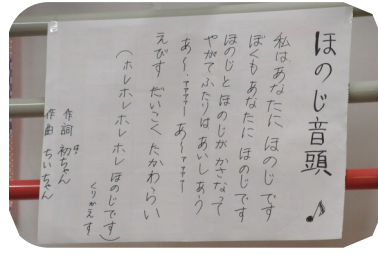 ほのじ音頭 ♪
私はあなたに ほのじです
ぼくもあなたに ほのじです
ほのじと ほのじが かさなって
やがてふたりは あいしあう
あ〜、ァァァァー あ〜ァァァー
えびす だいこく たかわらい
(ホレホレホレホレ ほのじです)
くりかえす
作詞 初ちゃん
作曲 ちいちゃん